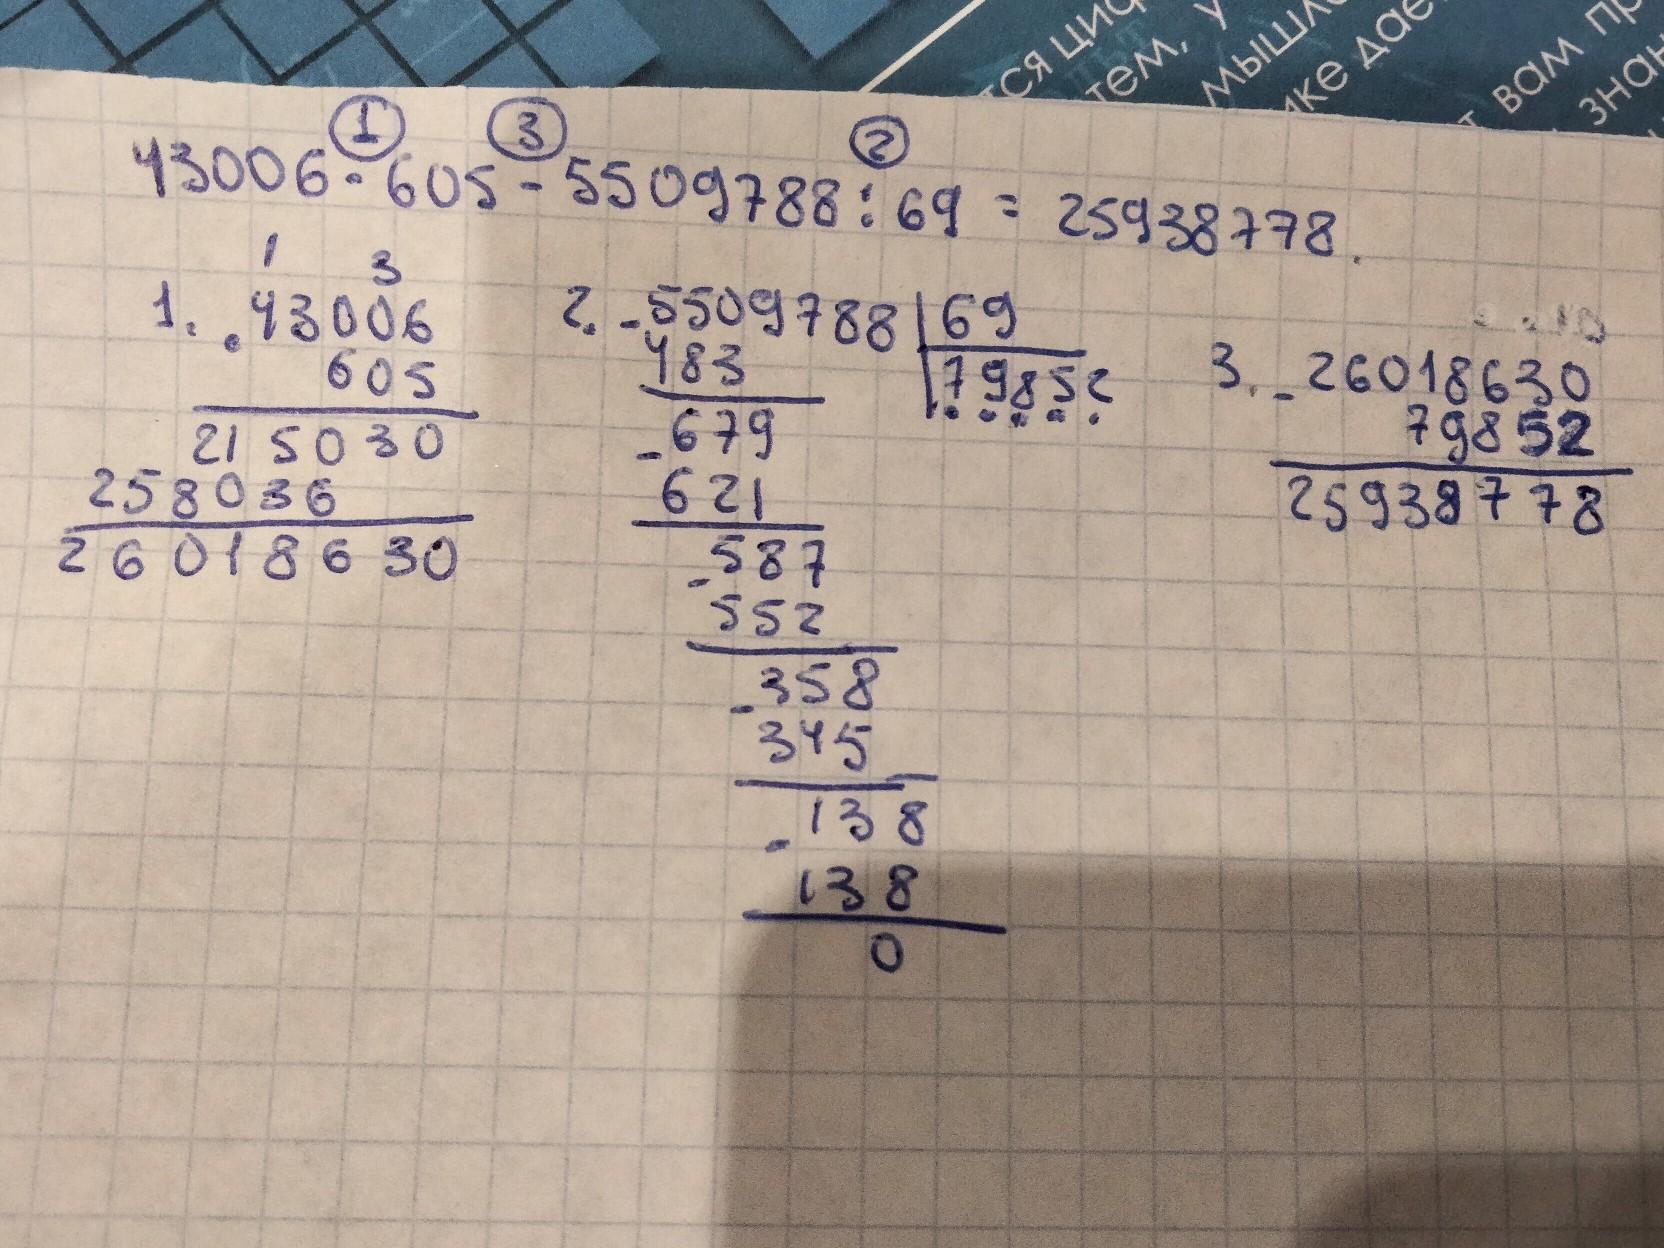 тся циф
тем, у
мышле
ике дае
вам пр
знан
1 3 2
43006 · 605 - 5509788 : 69 = 25938778.
1 3
1. 43006
605
215030
258036
26018630
2. - 5509788 | 69
483 79852
- 679
621
- 587
552
- 358
345
- 138
138
0
3. - 26018630
79852
25938778